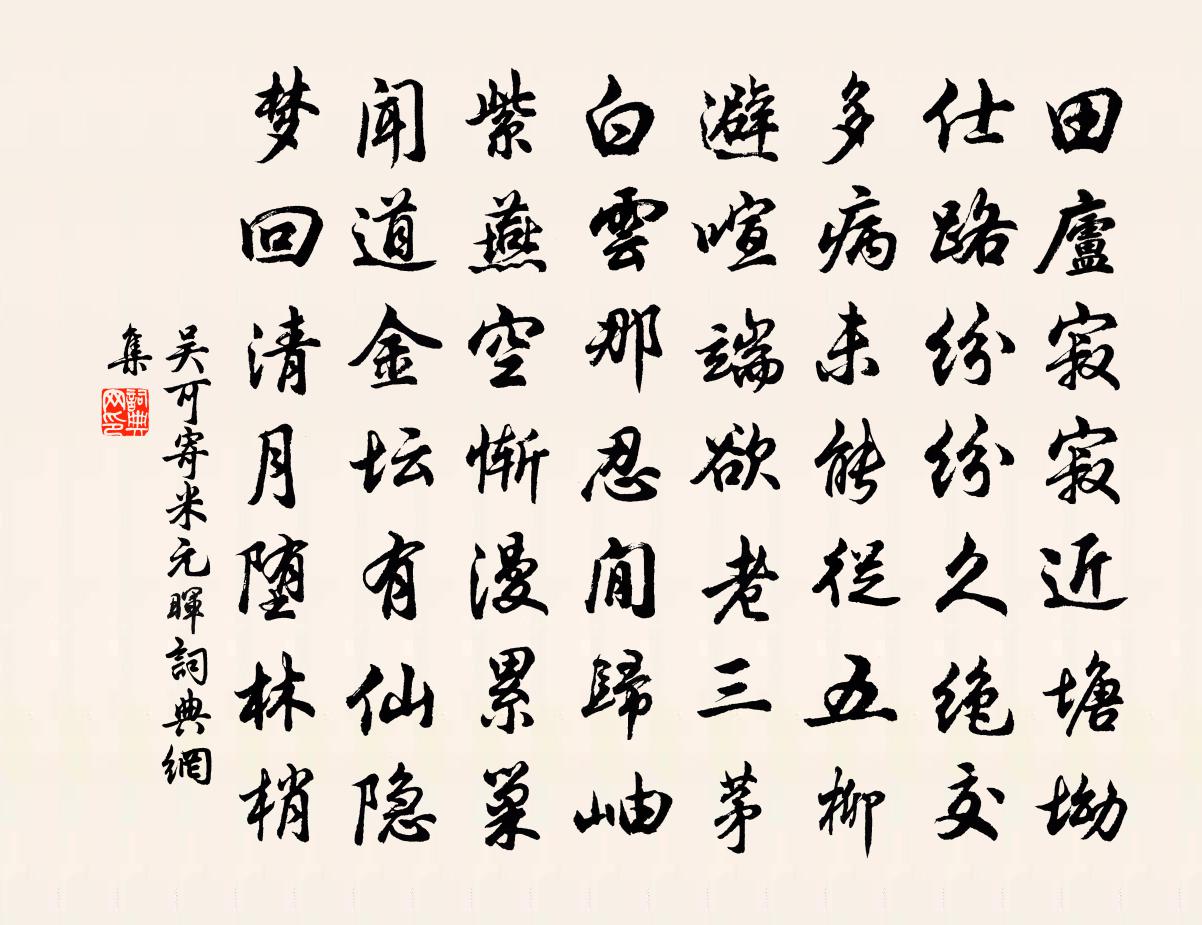 田廬寂寂近塘坳
仕路紛紛久絶交
多病未能從五柳
避喧端欲老三茅
白雲那忍閒歸岫
紫燕空慚漫累巢
闻道金坛有仙隐
梦回清月堕林梢
吴可寄米元暉詞典網
集
詞典
网印